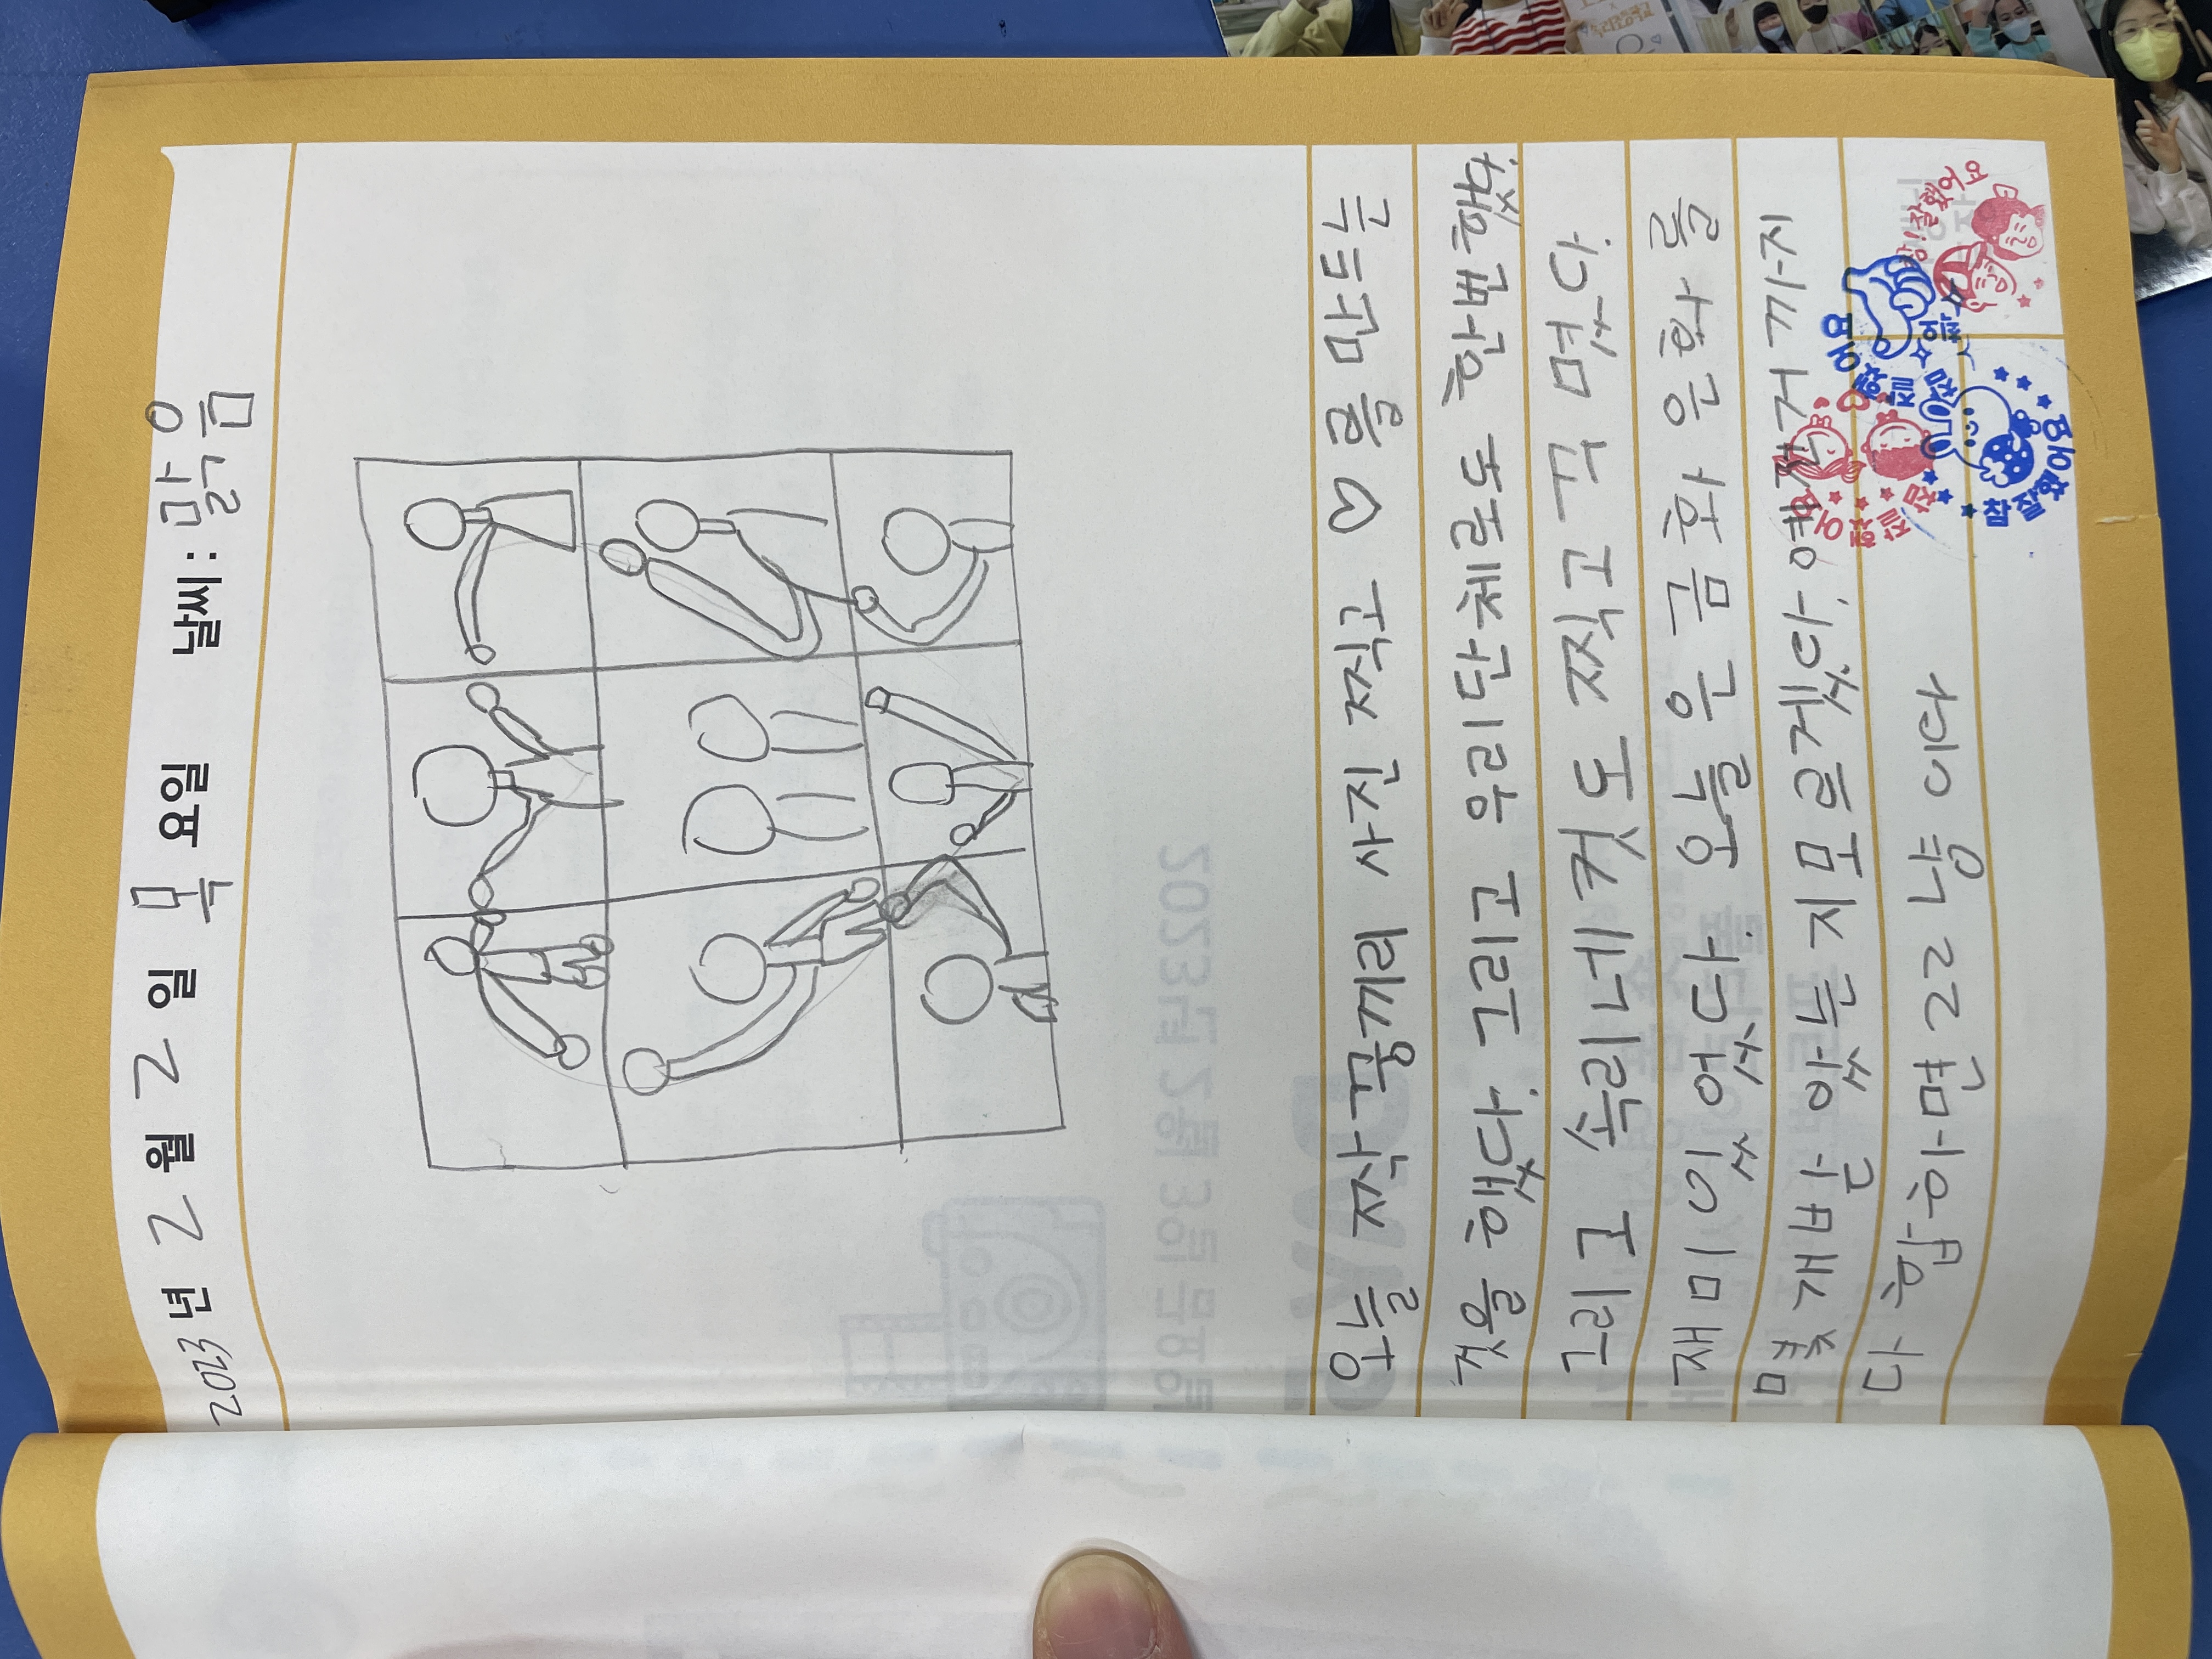 2023년 2월 2일 목요일 날씨: 맑음
오늘 짝꿍끼리 사진 찍고 ♡를 만드는
것을 했다. 그리고 우리단체로도 한번 했다.
그리고 속리네컷도 찍고 꾸몄다.
재미있었다. 오늘은 금화 은화를
몇개받았는지모르겠다. 예전거까지
다 합하면 22냥 이다
참 잘했어요
참 잘했어요
참 잘했어요
잘했어요
2023년 2월 3일 금요일
DAY 5